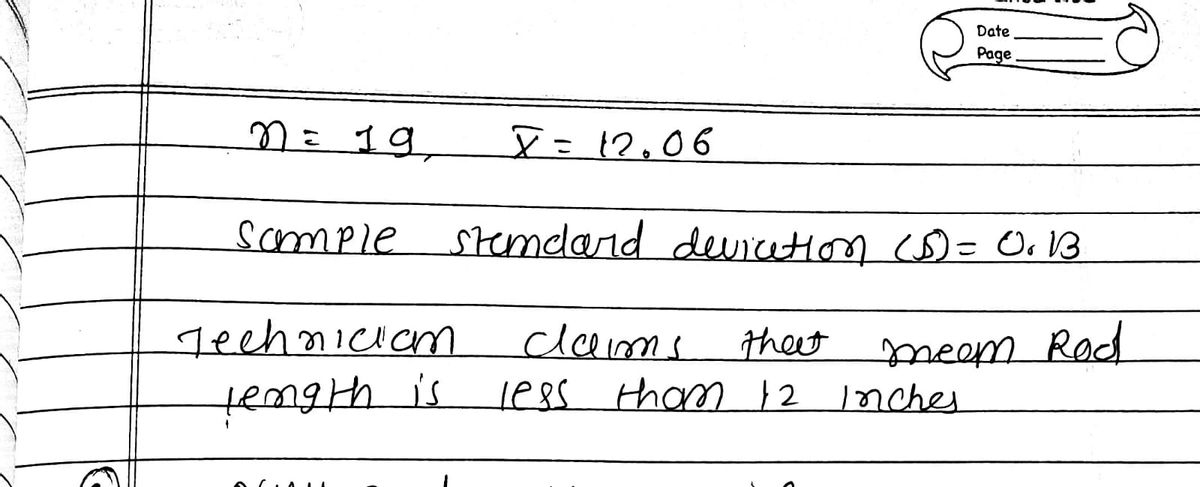 Date
Page
n = 19, x̄ = 12.06
Sample standard deviation (s) = 0.13
Technician claims that mean Rod
length is less than 12 inches